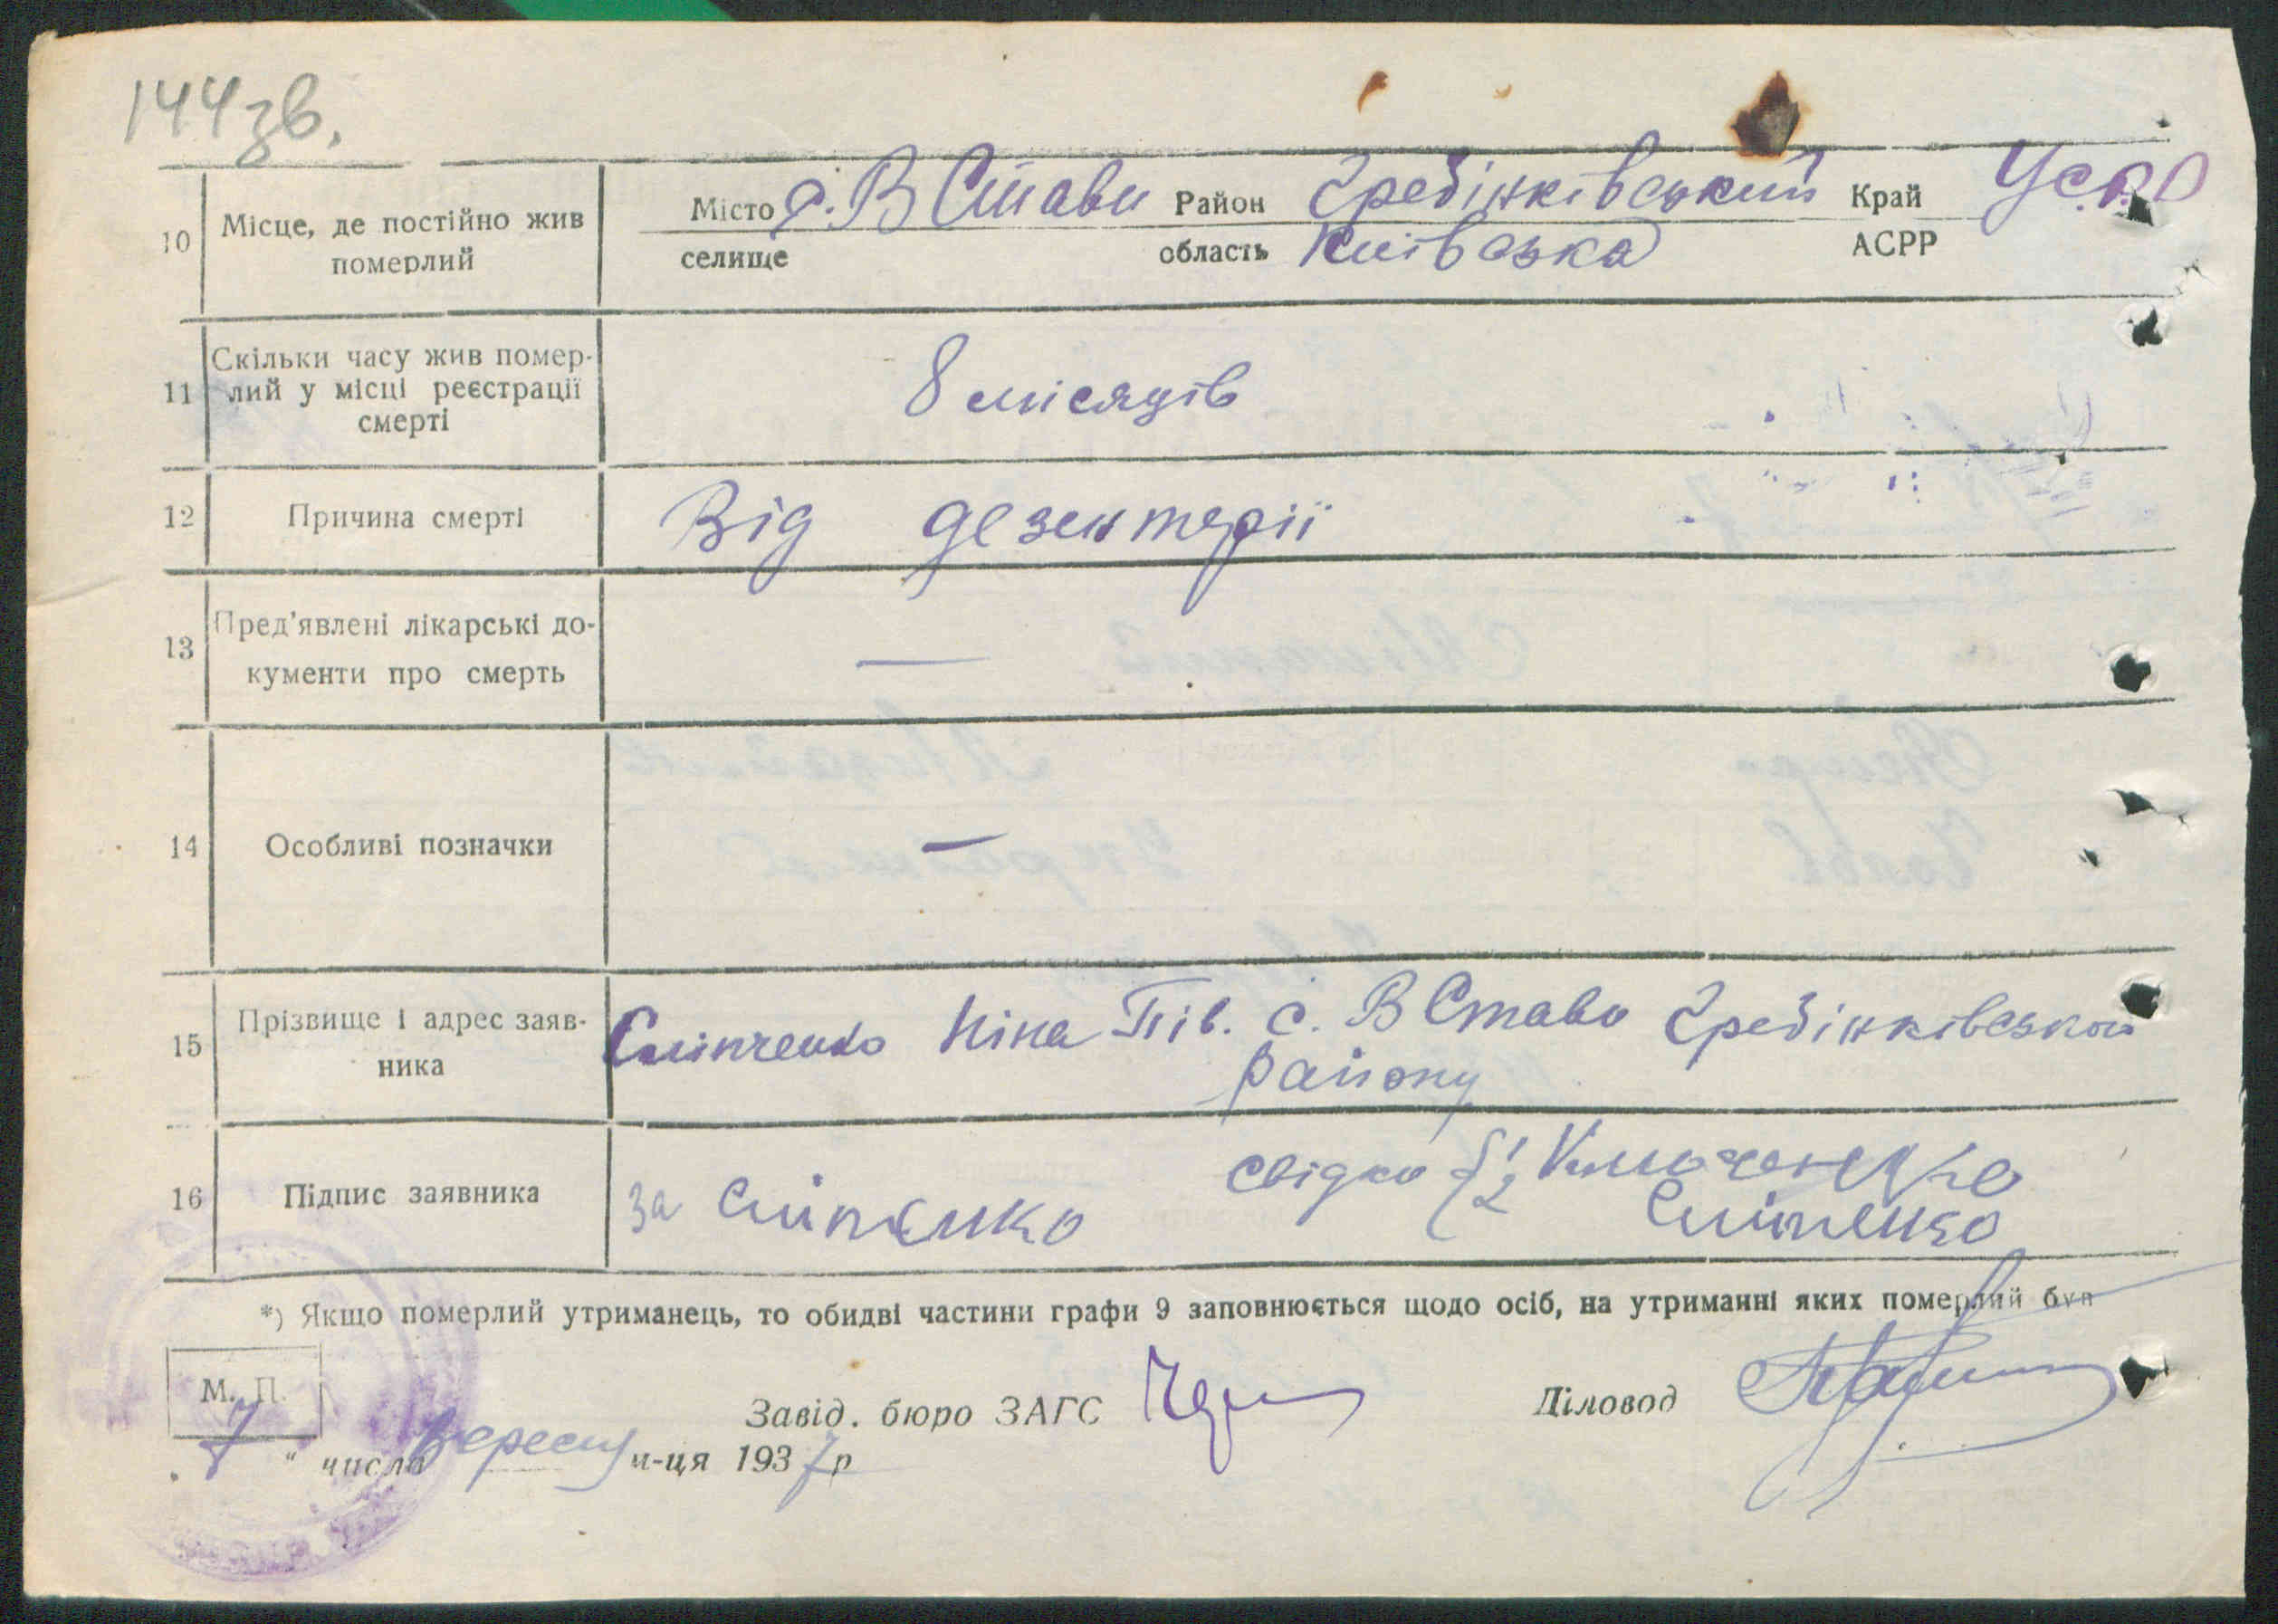 144зв.
10 Місце, де постійно жив померлий Місто с. В Стави Район Гребінківський Край УСРР
селище область Київська АСРР
11 Скільки часу жив помер-
лий у місці реєстрації
смерті
8 місяців
12 Причина смерті Від дезентерії
13 Пред’явлені лікарські до-
кументи про смерть —
14 Особливі позначки —
15 Прізвище і адрес заяв-
ника
Сліпченко Ніна с. В Стави Гребінківського
району
16 Підпис заявника За Сліпченко свідки 1
2 Сліпченко
*) Якщо померлий утриманець, то обидві частини графи 9 заповнюється щодо осіб, на утриманні яких померлий був
М. П.
Завід. бюро ЗАГС Діловод
7 “ числа вересня м-ця 1937 р